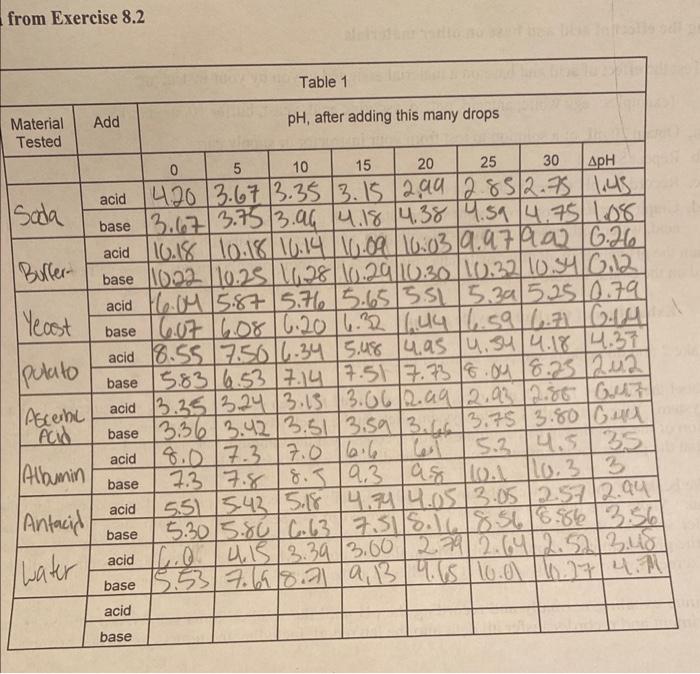 from Exercise 8.2
Table 1
Material Tested Add pH, after adding this many drops
0 5 10 15 20 25 30 ΔpH
Soda acid 4.20 3.67 3.35 3.15 2.99 2.85 2.75 1.45
base 3.67 3.75 3.96 4.18 4.38 4.59 4.75 1.08
Buffer acid 10.18 10.18 10.14 10.09 10.03 9.97 9.92 0.26
base 10.22 10.25 10.28 10.29 10.30 10.32 10.34 0.12
Yeast acid 6.04 5.87 5.76 5.65 5.51 5.39 5.25 0.79
base 6.07 6.08 6.20 6.32 6.44 6.59 6.71
potato acid 8.55 7.50 6.34 5.48 4.95 4.54 4.18 4.37
base 5.83 6.53 7.14 7.51 7.73 8.04 8.25 2.42
Ascorbic Acid acid 3.35 3.24 3.13 3.06 2.99 2.93 2.88 0.47
base 3.36 3.42 3.51 3.59 3.66 3.75 3.80 0.44
Albumin acid 8.0 7.3 7.0 6.6 6.1 5.3 4.5 35
base 7.3 7.8 8.5 9.3 9.8 10.1 10.3 3
Antacid acid 5.51 5.43 5.18 4.74 4.05 3.05 2.57 2.94
base 5.30 5.86 6.63 7.51 8.16 8.56 8.86 3.56
Water acid 6.0 4.15 3.39 3.00 2.79 2.64 2.52 3.48
base 5.53 7.69 8.71 9.13 9.65 10.01 10.27 4.74
acid
base